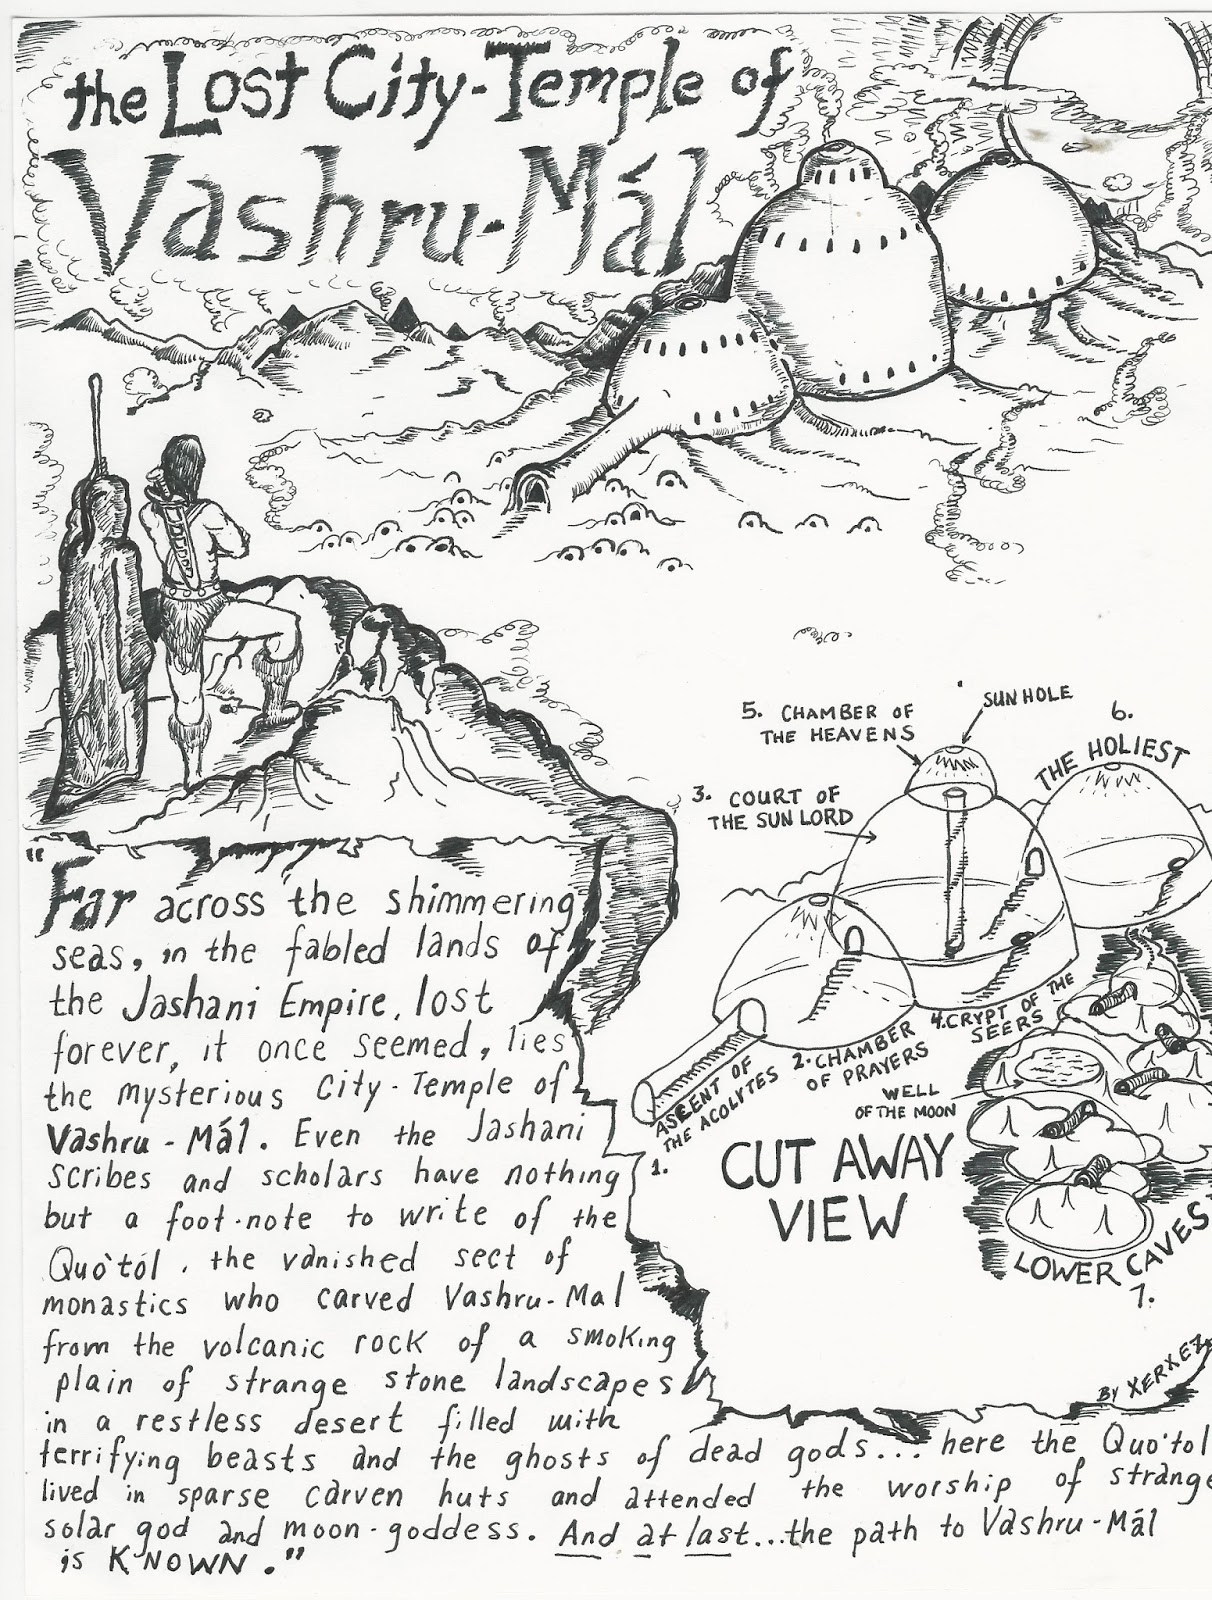 the Lost City-Temple of
Vashru-Mál
5. CHAMBER OF
THE HEAVENS
SUN HOLE
6.
THE HOLIEST
3. COURT OF
THE SUN LORD
4. CRYPT OF THE
SEERS
2. CHAMBER
OF PRAYERS
ASCENT OF
THE ACOLYTES
1.
WELL
OF THE MOON
CUT AWAY
VIEW
LOWER CAVES
7.
BY XERXEZ
"Far across the shimmering
seas, in the fabled lands of
the Jashani Empire, lost
forever, it once seemed, lies
the mysterious City-Temple of
Vashru-Mál. Even the Jashani
scribes and scholars have nothing
but a foot-note to write of the
Quo'tól, the vanished sect of
monastics who carved Vashru-Mal
from the volcanic rock of a smoking
plain of strange stone landscapes
in a restless desert filled with
terrifying beasts and the ghosts of dead gods... here the Quo'tol
lived in sparse carven huts and attended the worship of strange
solar god and moon-goddess. And at last...the path to Vashru-Mál
is KNOWN."